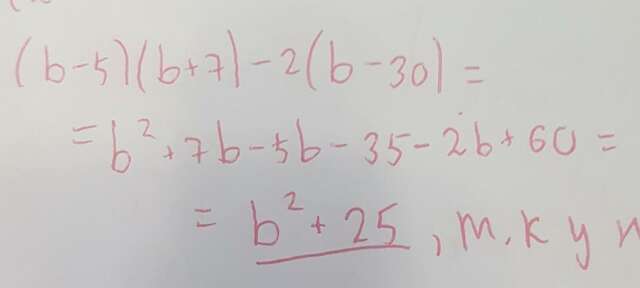 (b-5)(b+7)-2(b-30)=
=b²+7b-5b-35-2b+60=
=b²+25, m.k y n